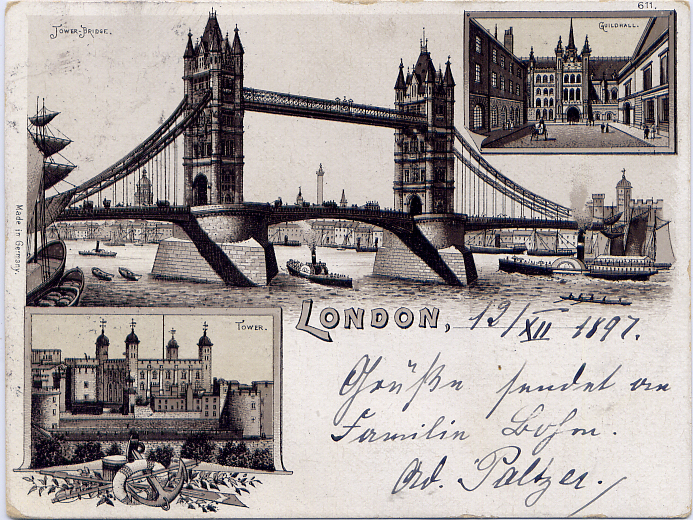 611.
TOWER-BRIDGE.
GUILDHALL.
Made in Germany.
LONDON, 19/XII 1897.
TOWER.
Grüße sendet an
Familie Bohm.
Ad. Paltzer.